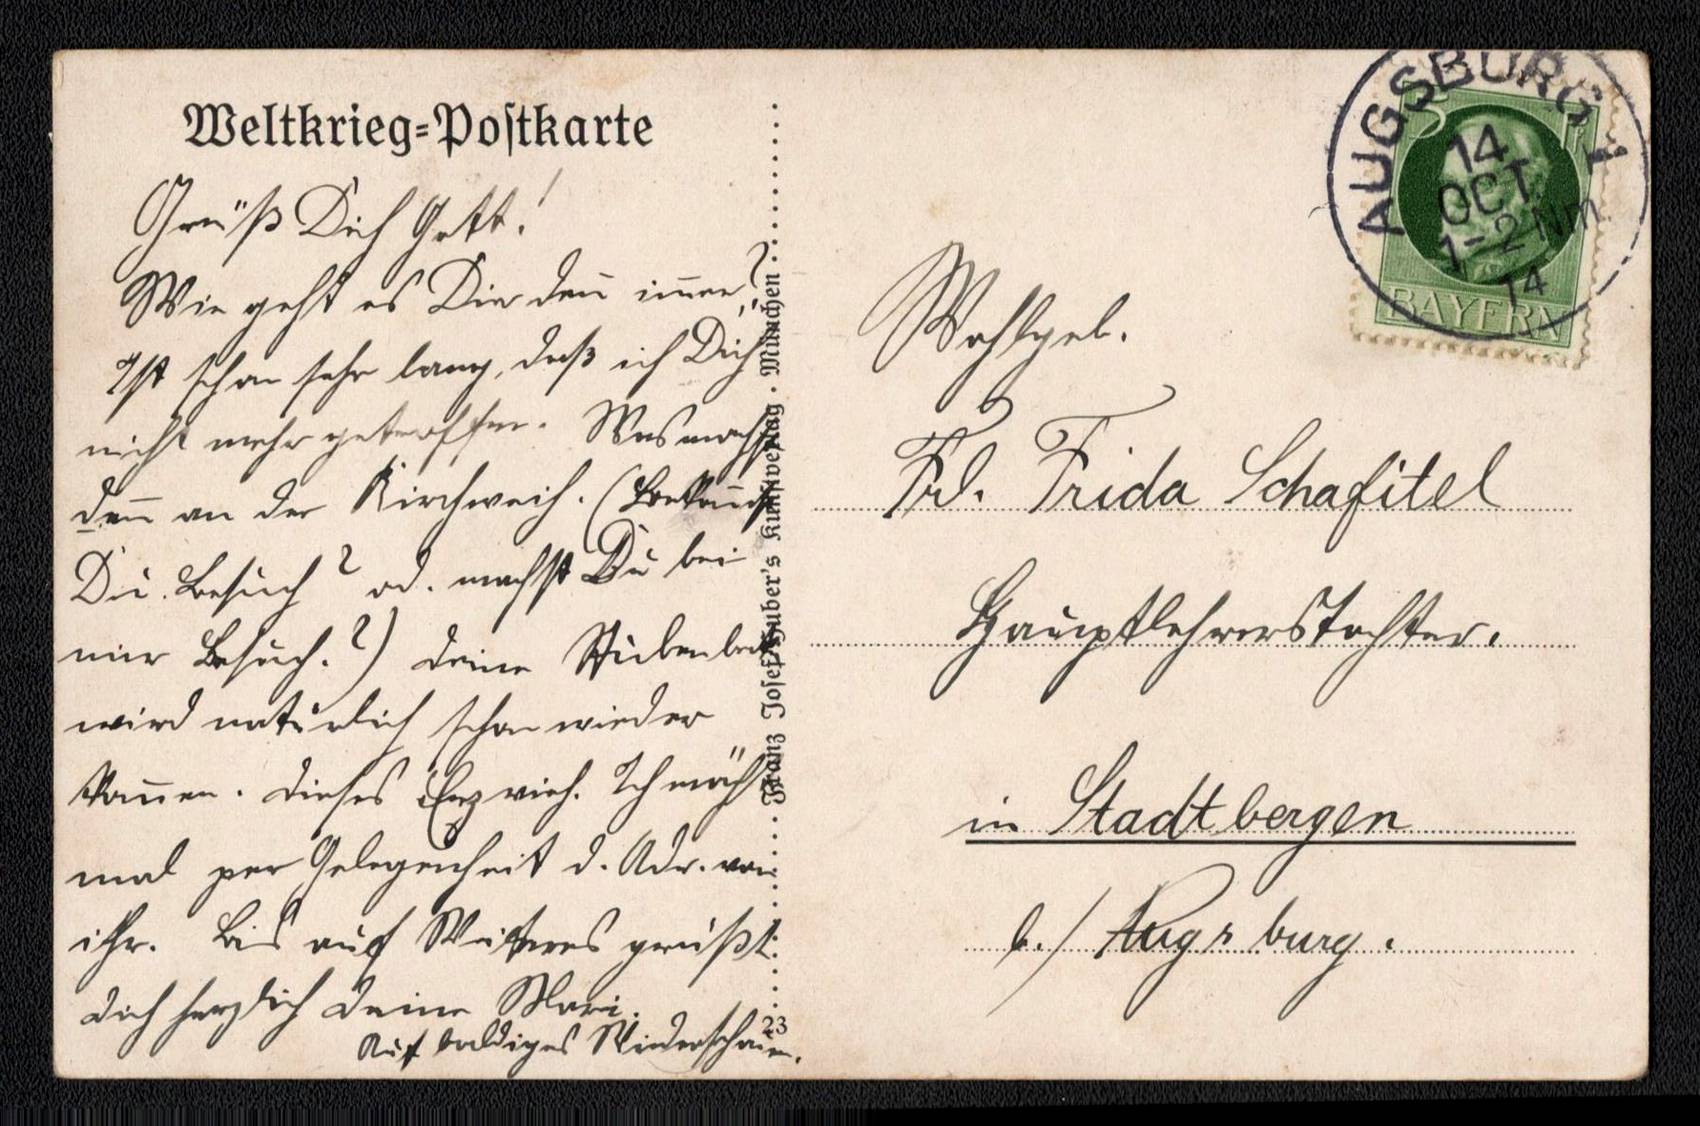 Weltkrieg-Postkarte
Grüß Dich Gott!
Wie geht es Dir denn immer?
Ist schon sehr lang, daß ich Dich
nicht mehr getroffen. Was machst
denn an der Kirchweih. (Bekommst
Du Besuch? od. machst Du bei
mir Besuch.?) Deine
wird natürlich schon wieder
kommen. Dieses Ich möcht
mal per Gelegenheit d. Adr. von
ihr. Bis auf Weiteres grüßt
Dich herzlich Deine Mari.
Auf baldiges Wiederschauen.
Franz Josef Huber's Kunstverlag · München
23
AUGSBURG 1
14
OCT.
1-2 Nm
14
5
BAYERN
Wohlgeb.
Frl. Frida Schafitel
Hauptlehrerstochter.
in Stadtbergen
b./ Augsburg.